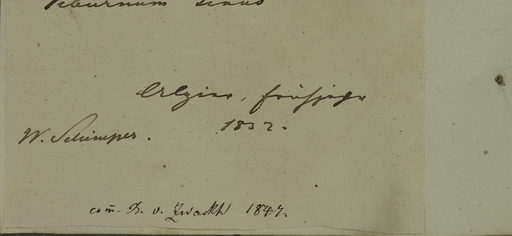 Viburnum tinus
Algier, Frühjahr
1832.
W. Schimper.
com. D. v. Zwackh 1847.